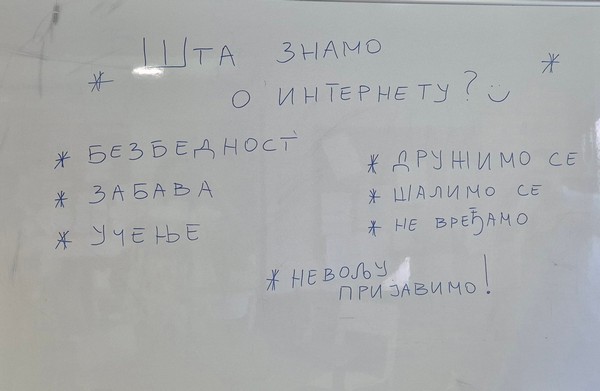 ШТА ЗНАМО
О ИНТЕРНЕТУ?
* БЕЗБЕДНОСТ
* ЗАБАВА
* УЧЕЊЕ
* ДРУЖИМО СЕ
* ШАЛИМО СЕ
* НЕ ВРЕЂАМО
* НЕВОЉУ
ПРИЈАВИМО!